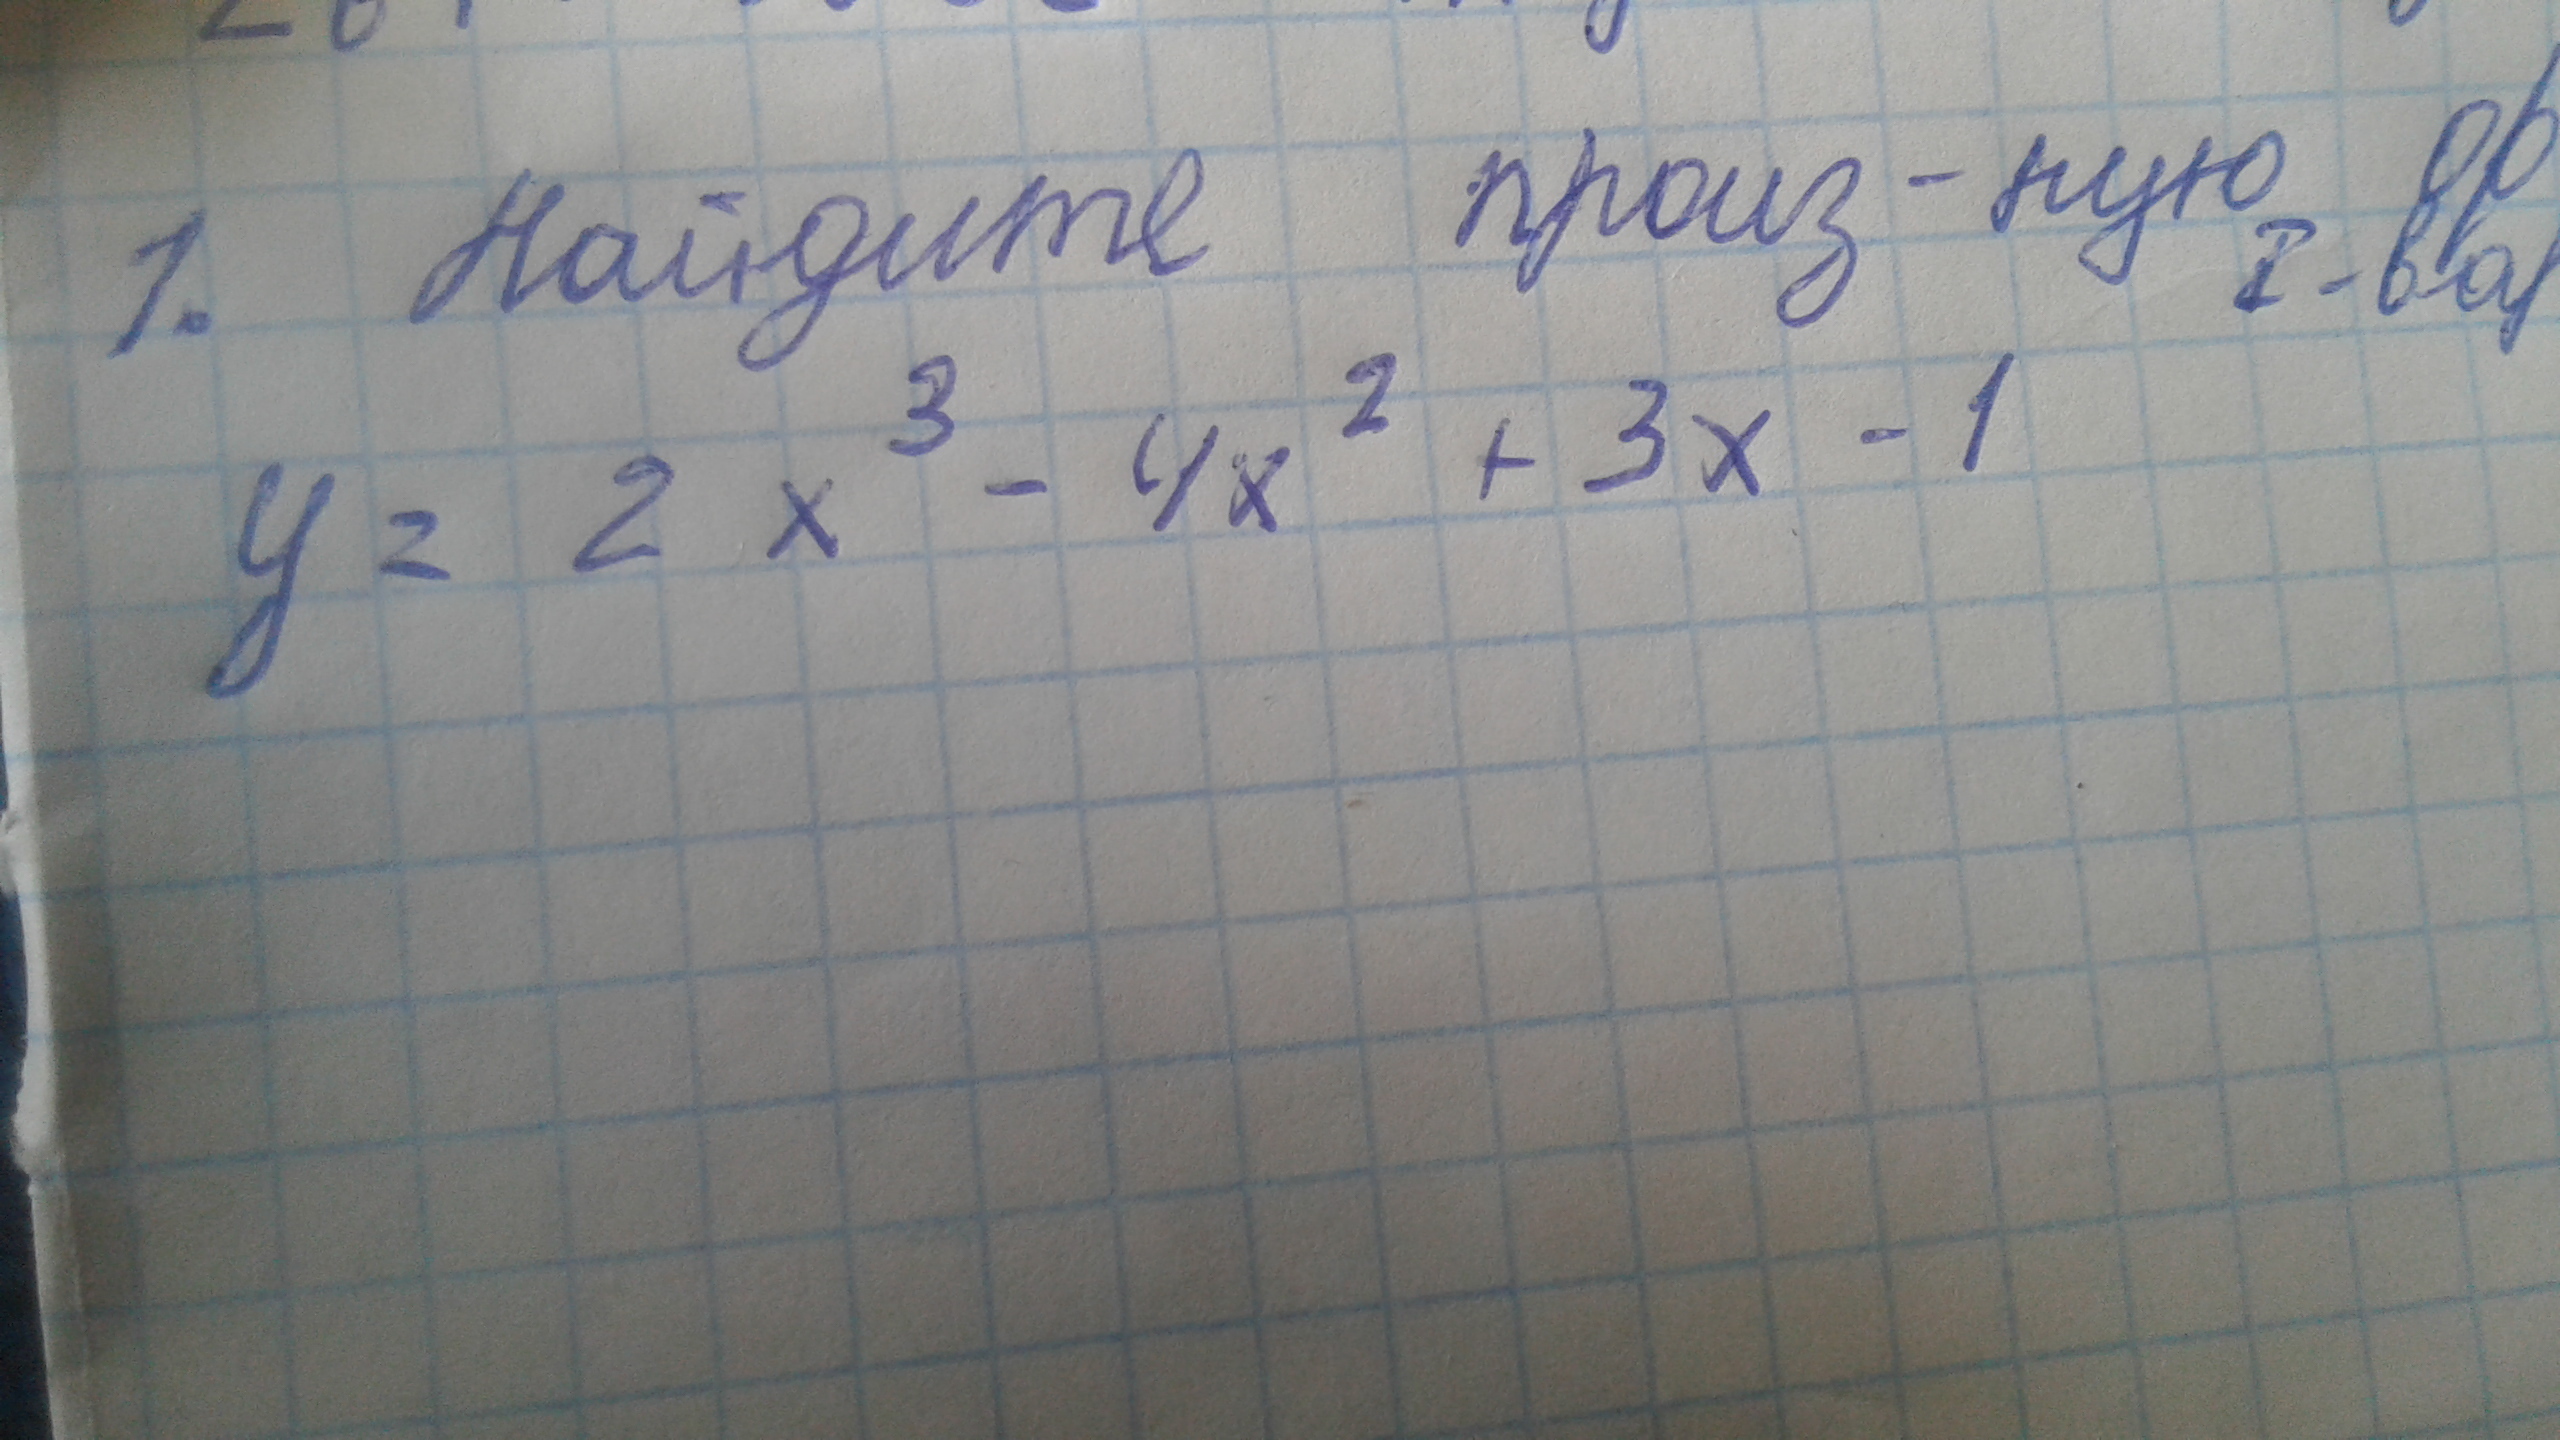 1. Найдите произ-ную
I-вар
y = 2x³ - 4x² + 3x - 1